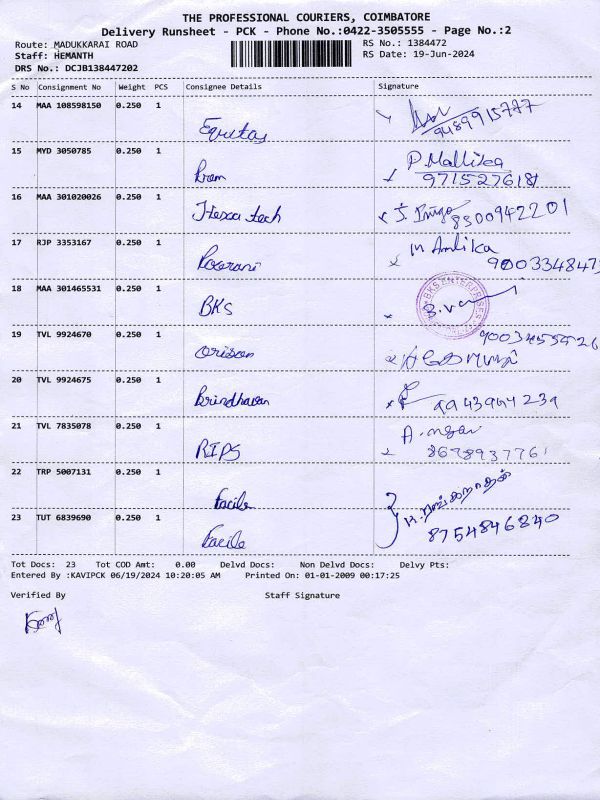 THE PROFESSIONAL COURIERS, COIMBATORE
Delivery Runsheet - PCK - Phone No.:0422-3505555 - Page No.:2
Route: MADUKKARAI ROAD RS No.: 1384472
Staff: HEMANTH RS Date: 19-Jun-2024
DRS No.: DCJB138447202
S No Consignment No Weight PCS Consignee Details Signature
14 MAA 108598150 0.250 1 Equitas 9489915777
15 MYD 3050785 0.250 1 Ram P. Mallika
9715276181
16 MAA 301020026 0.250 1 Hexa tech 8300942201
17 RJP 3353167 0.250 1 M Ambika
18 MAA 301465531 0.250 1 BKS BKS ENTERPRISES
19 TVL 9924670 0.250 1 Orison
20 TVL 9924675 0.250 1 Brindhavan 9943944239
21 TVL 7835078 0.250 1 RIPS
8678937761
22 TRP 5007131 0.250 1 Facile
23 TUT 6839690 0.250 1 Facile 8754846840
Tot Docs: 23 Tot COD Amt: 0.00 Delvd Docs: Non Delvd Docs: Delvy Pts:
Entered By :KAVIPCK 06/19/2024 10:20:05 AM Printed On: 01-01-2009 00:17:25
Verified By Staff Signature